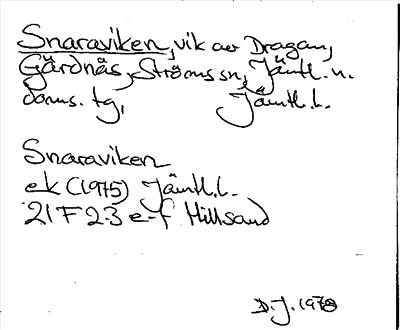 Snaraviken, vik av Dragan,
Gärdnäs, Ströms sn, Jämtl. n.
doms. tg, Jämtl. l.
Snaraviken
ek (1975) Jämtl. l.
21 F 23 e-f Hillsand
D. J. 1978